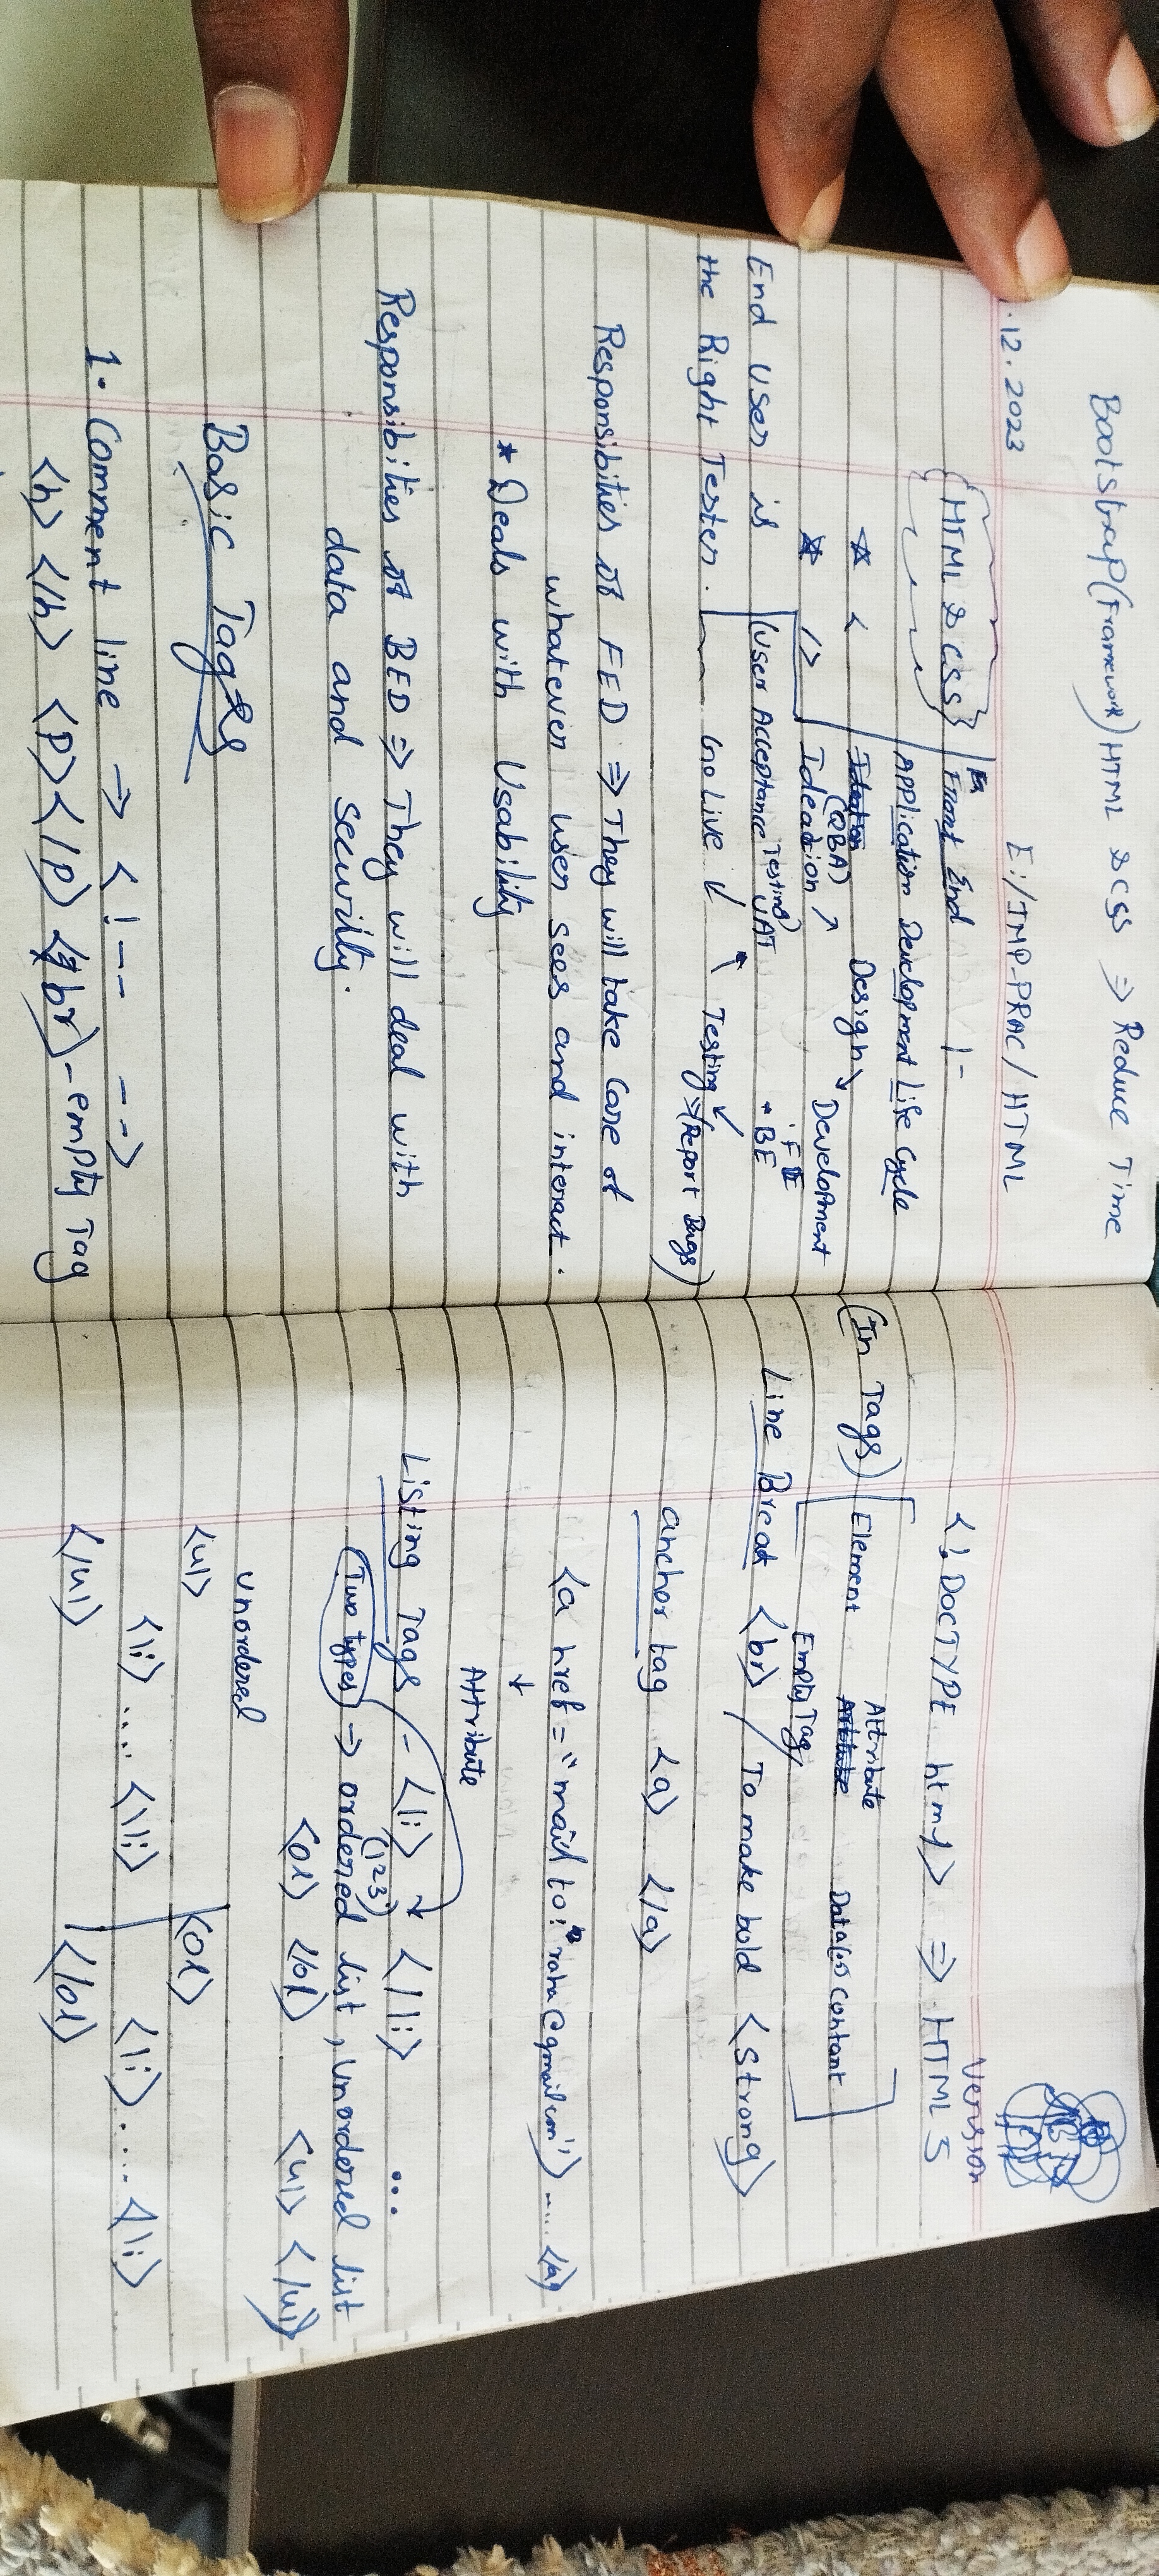 Bootstrap (Framework) HTML & CSS => Reduce Time
.12.2023 E:/IMP-PRAC/HTML
{HTML & CSS} Front End
Application Development Life Cycle
* < Design ↘
(BA)
* /> Ideadion ↗ Development
• FE
End User is (User Acceptance Testing) UAT • BE
the Right Tester. Go Live ↙ ↖ Testing ↙ => (Report Bugs)
Responsibities of FED => They will take Care of
whatever user sees and interact.
* Deals with Usability
Responsibities of BED => They will deal with
data and security.
Basic Tags
1. Comment line → <!-- -->
<h> </h> <p> </p> <br> - empty Tag
Version
<!DOCTYPE html> => HTML 5
(In Tags) Element Attribute Data(or) Contant
Empty Tag
Line Break <br> / To make bold <strong>
anchor tag <a> </a>
<a href = "mail to: raha@gmail.com"> ..... </a>
↓
Attribute
Listing Tags - <li> </li> ...
(123)
(Two types) => ordered list, unordered list
<ol> </ol> <ul> </ul>
unordered
<ul> <ol>
<li> .... <li> <li> .... <li>
</ul> </ol>